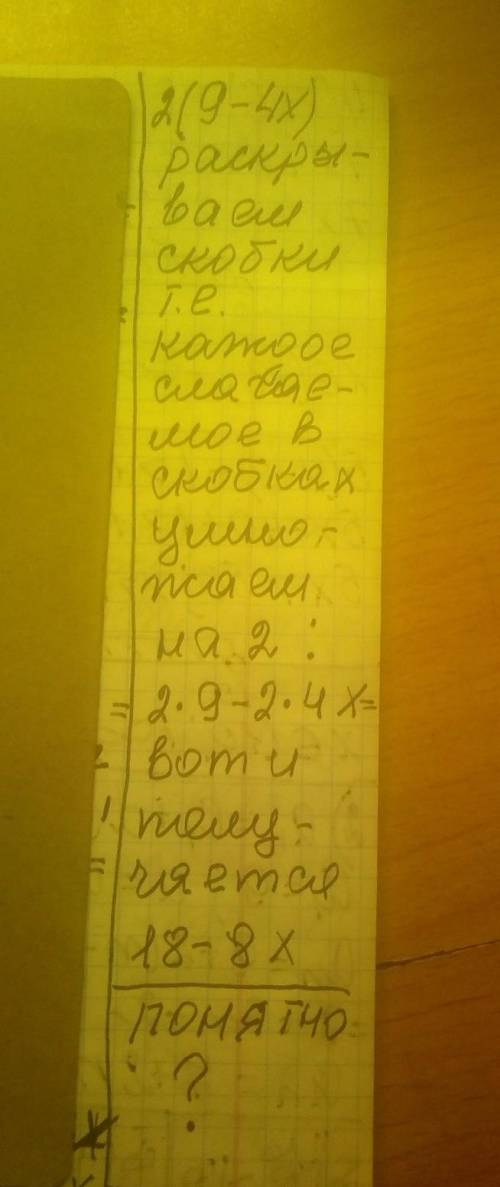 2(9-4x)
раскры-
ваем
скобки
т.е.
каждое
слагае-
мое в
скобках
умно-
жаем
на 2:
= 2·9-2·4x=
вот и
полу-
чается
18-8x
ПОНЯТНО
?